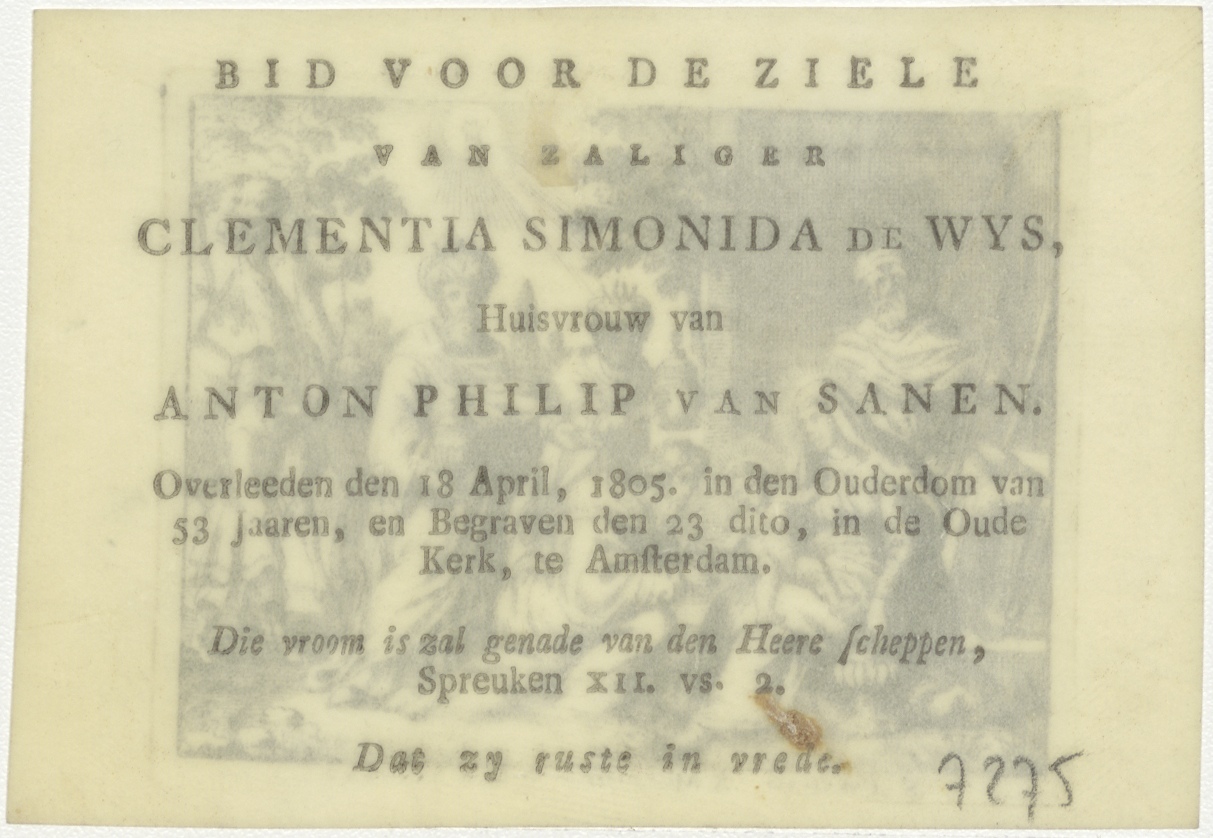 BID VOOR DE ZIELE
VAN ZALIGER
CLEMENTIA SIMONIDA DE WYS,
Huisvrouw van
ANTON PHILIP VAN SANEN.
Overleeden den 18 April, 1805. in den Ouderdom van
53 Jaaren, en Begraven den 23 dito, in de Oude
Kerk, te Amſterdam.
Die vroom is zal genade van den Heere ſcheppen,
Spreuken XII. vs. 2.
Dat zy ruste in vrede.
7275